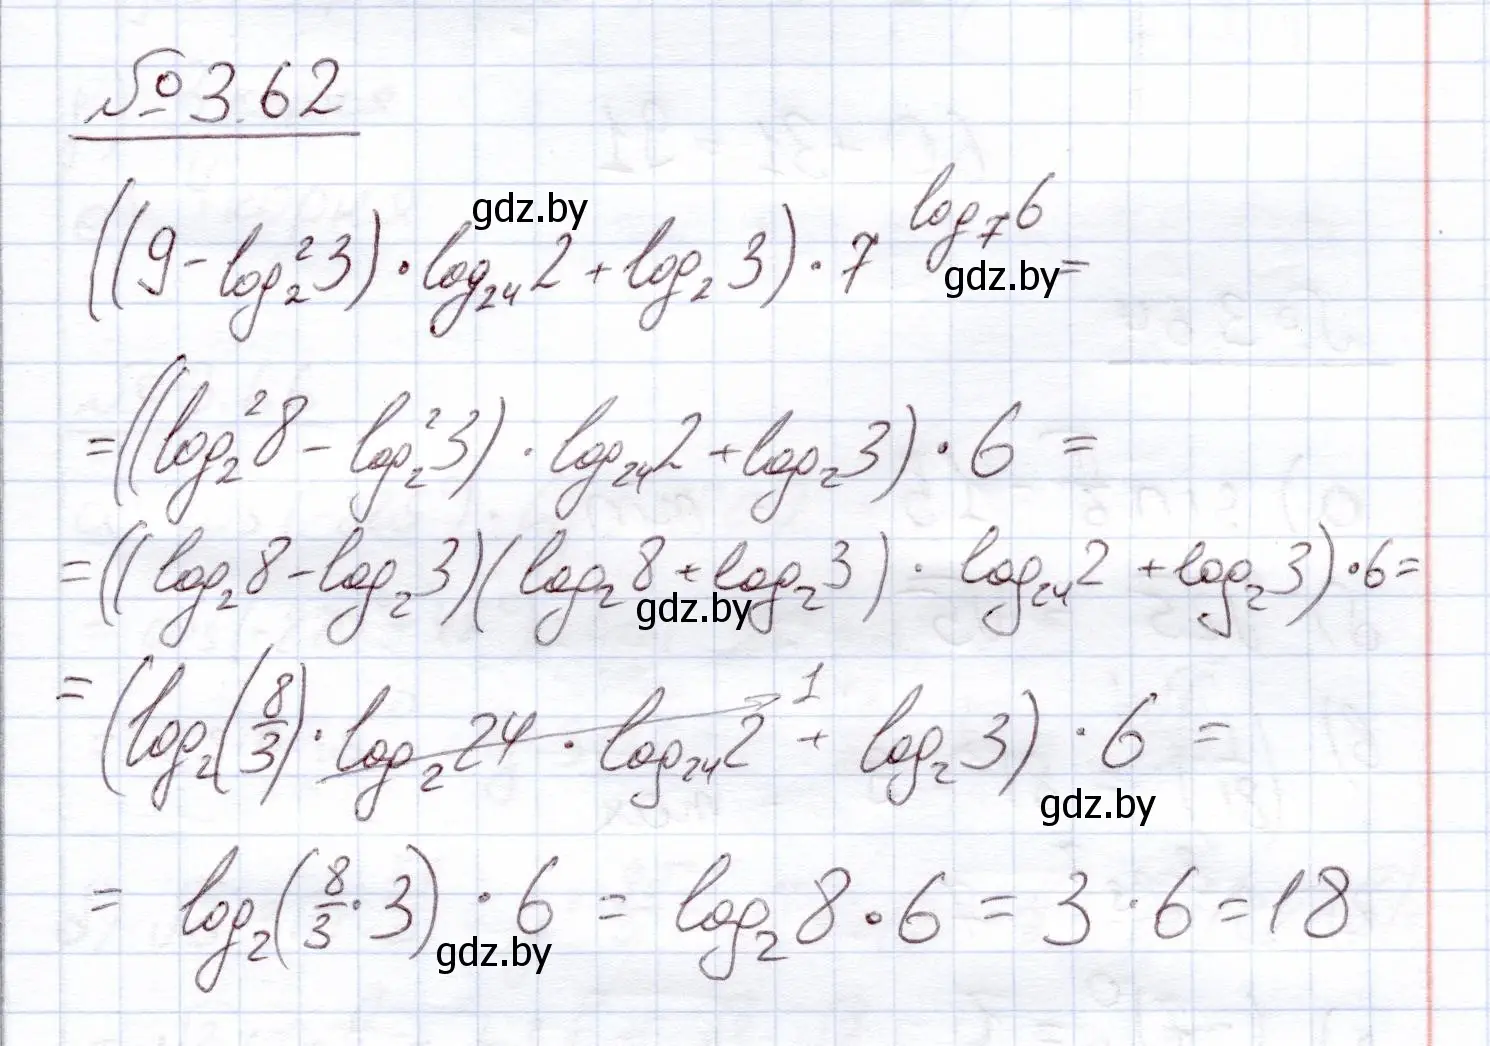 № 3.62
gdz.by
((9 - log₂² 3) · log₂₄ 2 + log₂ 3) · 7^(log₇ 6) =
gdz.by
= ((log₂² 8 - log₂² 3) · log₂₄ 2 + log₂ 3) · 6 =
= ((log₂ 8 - log₂ 3)(log₂ 8 + log₂ 3) · log₂₄ 2 + log₂ 3) · 6 =
gdz.by
= (log₂(8/3) · log₂ 24 · log₂₄ 2 1 + log₂ 3) · 6 =
gdz.by
= log₂(8/3 · 3) · 6 = log₂ 8 · 6 = 3 · 6 = 18
gdz.by